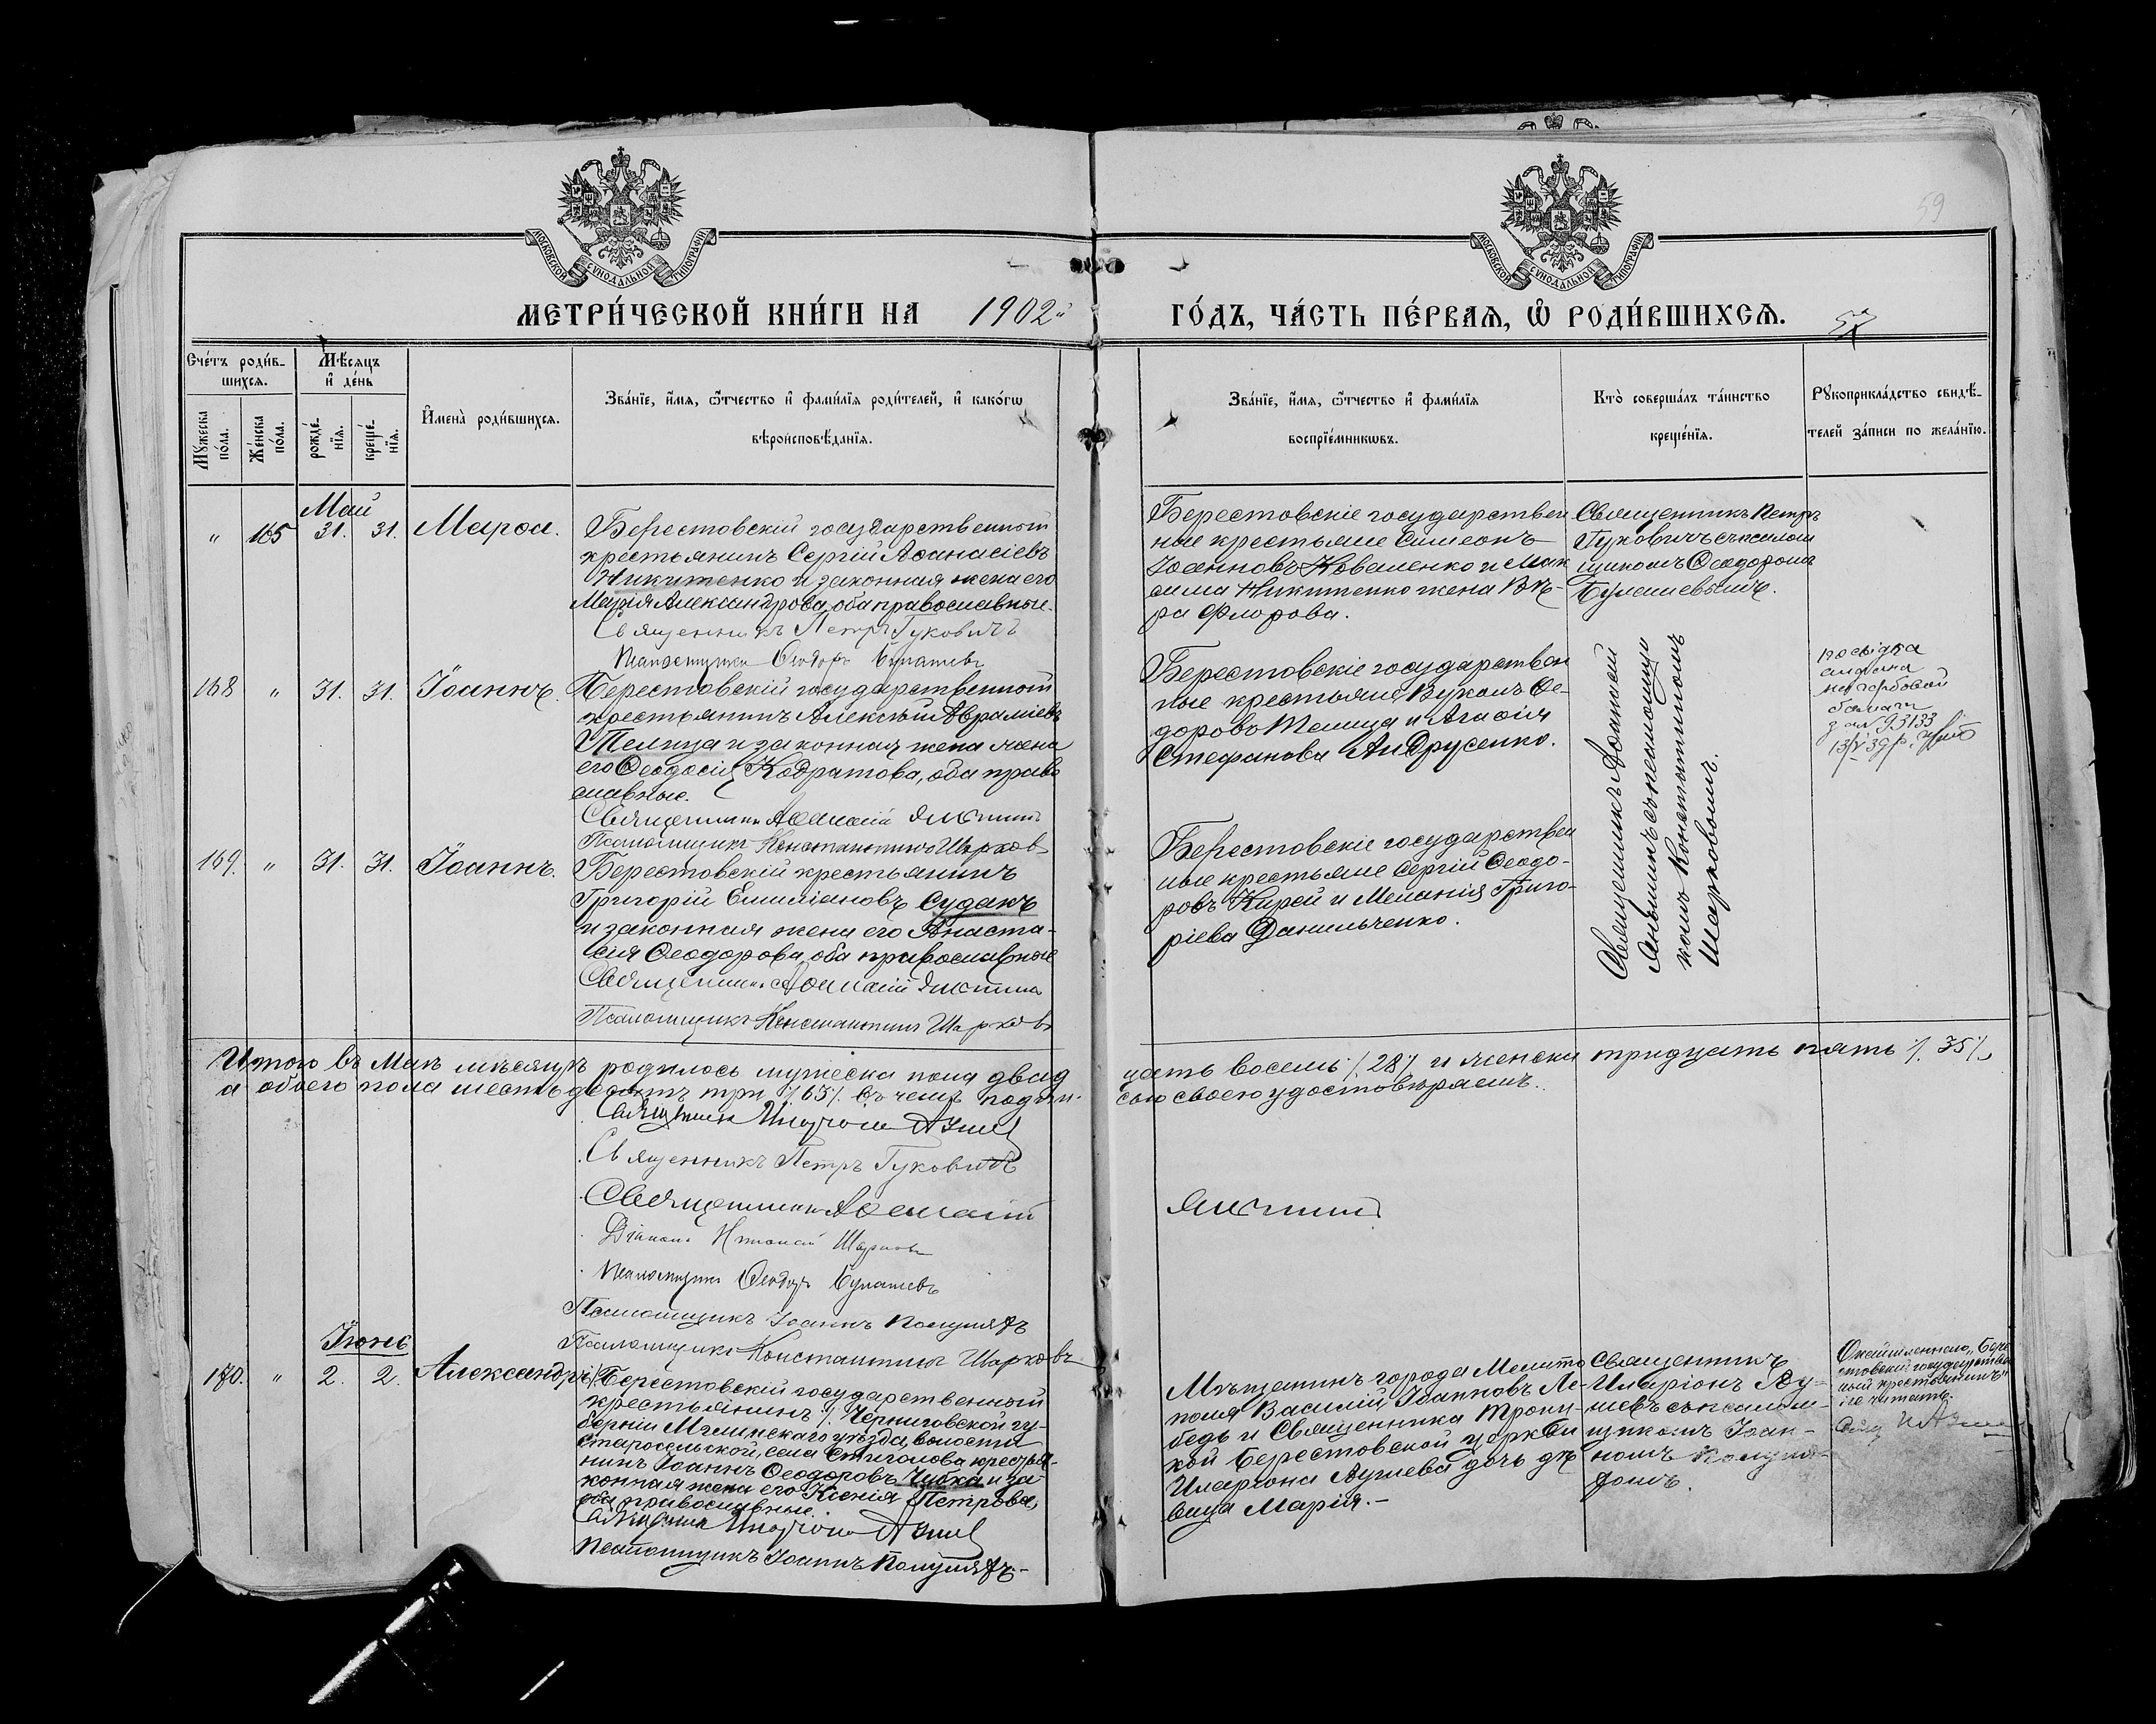 МОСКОВСКОЙ СУНОДАЛЬНОЙ ТИПОГРАФІИ
МОСКОВСКОЙ СУНОДАЛЬНОЙ ТИПОГРАФІИ
59
МЕТРИ́ЧЕСКОЙ КНИ́ГИ НА 1902й
ГО́ДЪ, ЧА́СТЬ ПЕ́РВАЯ, Ѡ РОДИ́ВШИХСЯ.
Сче́тъ роди́в-
шихся.
Мꙋжеска по́ла.
Же́нска по́ла.
Мѣсяцъ
и де́нь
рожде́-
нїя.
креще́-
нїя.
Имена̀ роди́вшихся.
Зва́нїе, и́мя, ѻ́тчество и фами́лїя роди́телей, и како́гѡ
вѣроисповѣ́данїя.
Зва́нїе, и́мя, ѻ́тчество и фами́лїя
воспрїе́мникѡвъ.
Кто̀ соверша́лъ та́инство
креще́нїя.
Рꙋкоприкла́дство свидѣ́-
телей за́писи по жела́нїю.
Май
" 165 31. 31. Марѳа.
Берестовскій государственный
крестьянинъ Сергій Аѳанасіевъ
Никитенко и законная жена его
Марія Александрова, оба православные.
Священникъ Петръ Гуковичъ
Псаломщикъ Ѳеодоръ Булашевъ
Берестовскіе государствен
ные крестьяне Симеонъ
Іоанновъ Коваленко и Мак
сима Никитенко жена Вѣ-
ра Флорова.
Священникъ Петръ
Гуковичъ съ псалом
щикомъ Ѳеодоромъ
Булашевымъ.
168 " 31. 31. Іоаннъ.
Берестовскій государственный
крестьянинъ Алексѣй Авраміевъ
Телица и законная жена жена
его Ѳеодосія Кодратова, оба право
славные.
Священникъ Аѳанасій
Псаломщикъ Константинъ Шарковъ
Берестовскіе государствен
ные крестьяне Вуколъ Ѳе-
доровъ Телица и Агафія
Стефанова Андрусенко.
Священникъ Аѳанасій
съ псаломщи
комъ Константиномъ
Шарковымъ.
посвідка
видана
на гербовой
бамаги
за № 93133
169. " 31. 31. Іоаннъ.
Берестовскій крестьянинъ
Григорій Емиліановъ Судакъ
и законная жена его Анаста-
сія Ѳеодорова, оба православные
Священникъ Аѳанасій
Псаломщикъ Константинъ Шарковъ
Берестовскіе государствен
ные крестьяне Сергій Ѳеодо-
ровъ Кирей и Меланія Григо-
ріева Данильченко.
Итого въ Маѣ мѣсяцѣ родилось мужеска пола двад
цать восемь /. 28 /. и женска тридцать пять /. 35 /.
а обоего пола шестьдесятъ три /. 63 /. въ чемъ подпи-
сью своею удостовѣряемъ.
Священникъ Иларіонъ
Священникъ Петръ Гуковичъ
Священникъ Аѳанасій
Діаконъ Николай Шарковъ
Псаломщикъ Ѳеодоръ Булашевъ
Псаломщикъ Іоаннъ
Псаломщикъ Константинъ Шарковъ
Іюнь
170. " 2. 2. Александръ
Берестовскій государственный
крестьянинъ /. Черниговской гу-
берніи Мглинскаго уѣзда, волости
старосельской, села крестья-
нинъ Іоаннъ Ѳеодоровъ Чубка и за-
конная жена его Ксенія Петрова,
оба православные.
Священникъ Иларіонъ
Псаломщикъ Іоаннъ
Мѣщанинъ города Мелито
поля Василій Іоанновъ Ле-
бедь и Священника Трои-
кой Берестовской церкви
Иларіона дочь дѣ
вица Марія.-
Священникъ
Иларіонъ
съ псалом-
щикомъ Іоан-
номъ
"Бере
стовскій государствен
ный крестьянинъ"
не читать.